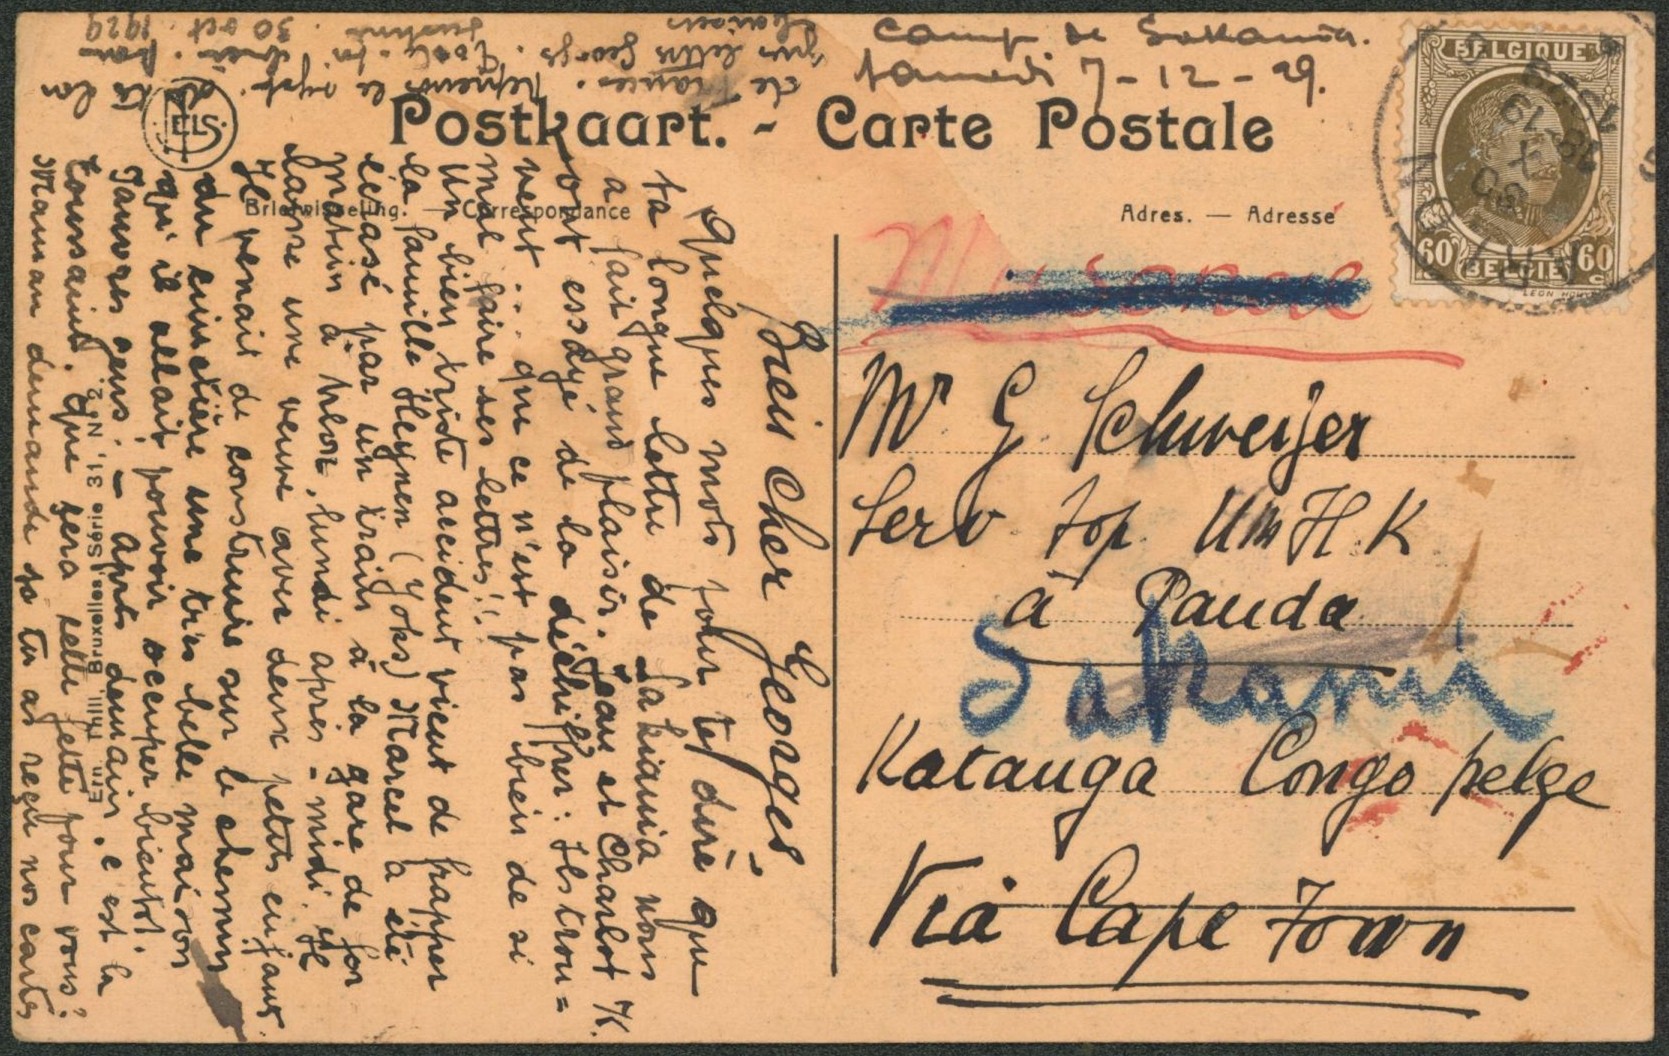 Camp de Sakania.
samedi 7-12-29.
Postkaart. - Carte Postale
Briefwisseling. — Correspondance
Adres. — Adresse
BELGIQUE
60 60
BELGIË
ELS
Mr G. Schweijer
Serv top. UMH.K
à Panda
Sakania
Katanga Congo belge
Via Cape Town
Bien cher Georges,
Quelques mots pour te dire que
ta longue lettre de Sakania nous
a fait grand plaisir. Jean et Charlot K.
ont essayé de la déchiffrer: Ils trou=
vent ... que ce n'est pas bien de si
mal faire ses lettres!!
Un bien triste accident vient de frapper
la famille Heynen (Joks) Marcel a été
écrasé par un train à la gare de
matin à , lundi après-midi. Il
laisse une veuve avec deux petits enfants.
Il venait de construire sur le chemin
du cimetière une très belle maison
qu'il allait pouvoir occuper bientôt.
Pauvres gens. - Après demain, c'est la
Toussaint. Que sera cette fête pour vous?
Maman demande si tu as reçu nos cartes
de France.
30 oct. 1929
Ern. Thill, Bruxelles, Série 31, No 2.